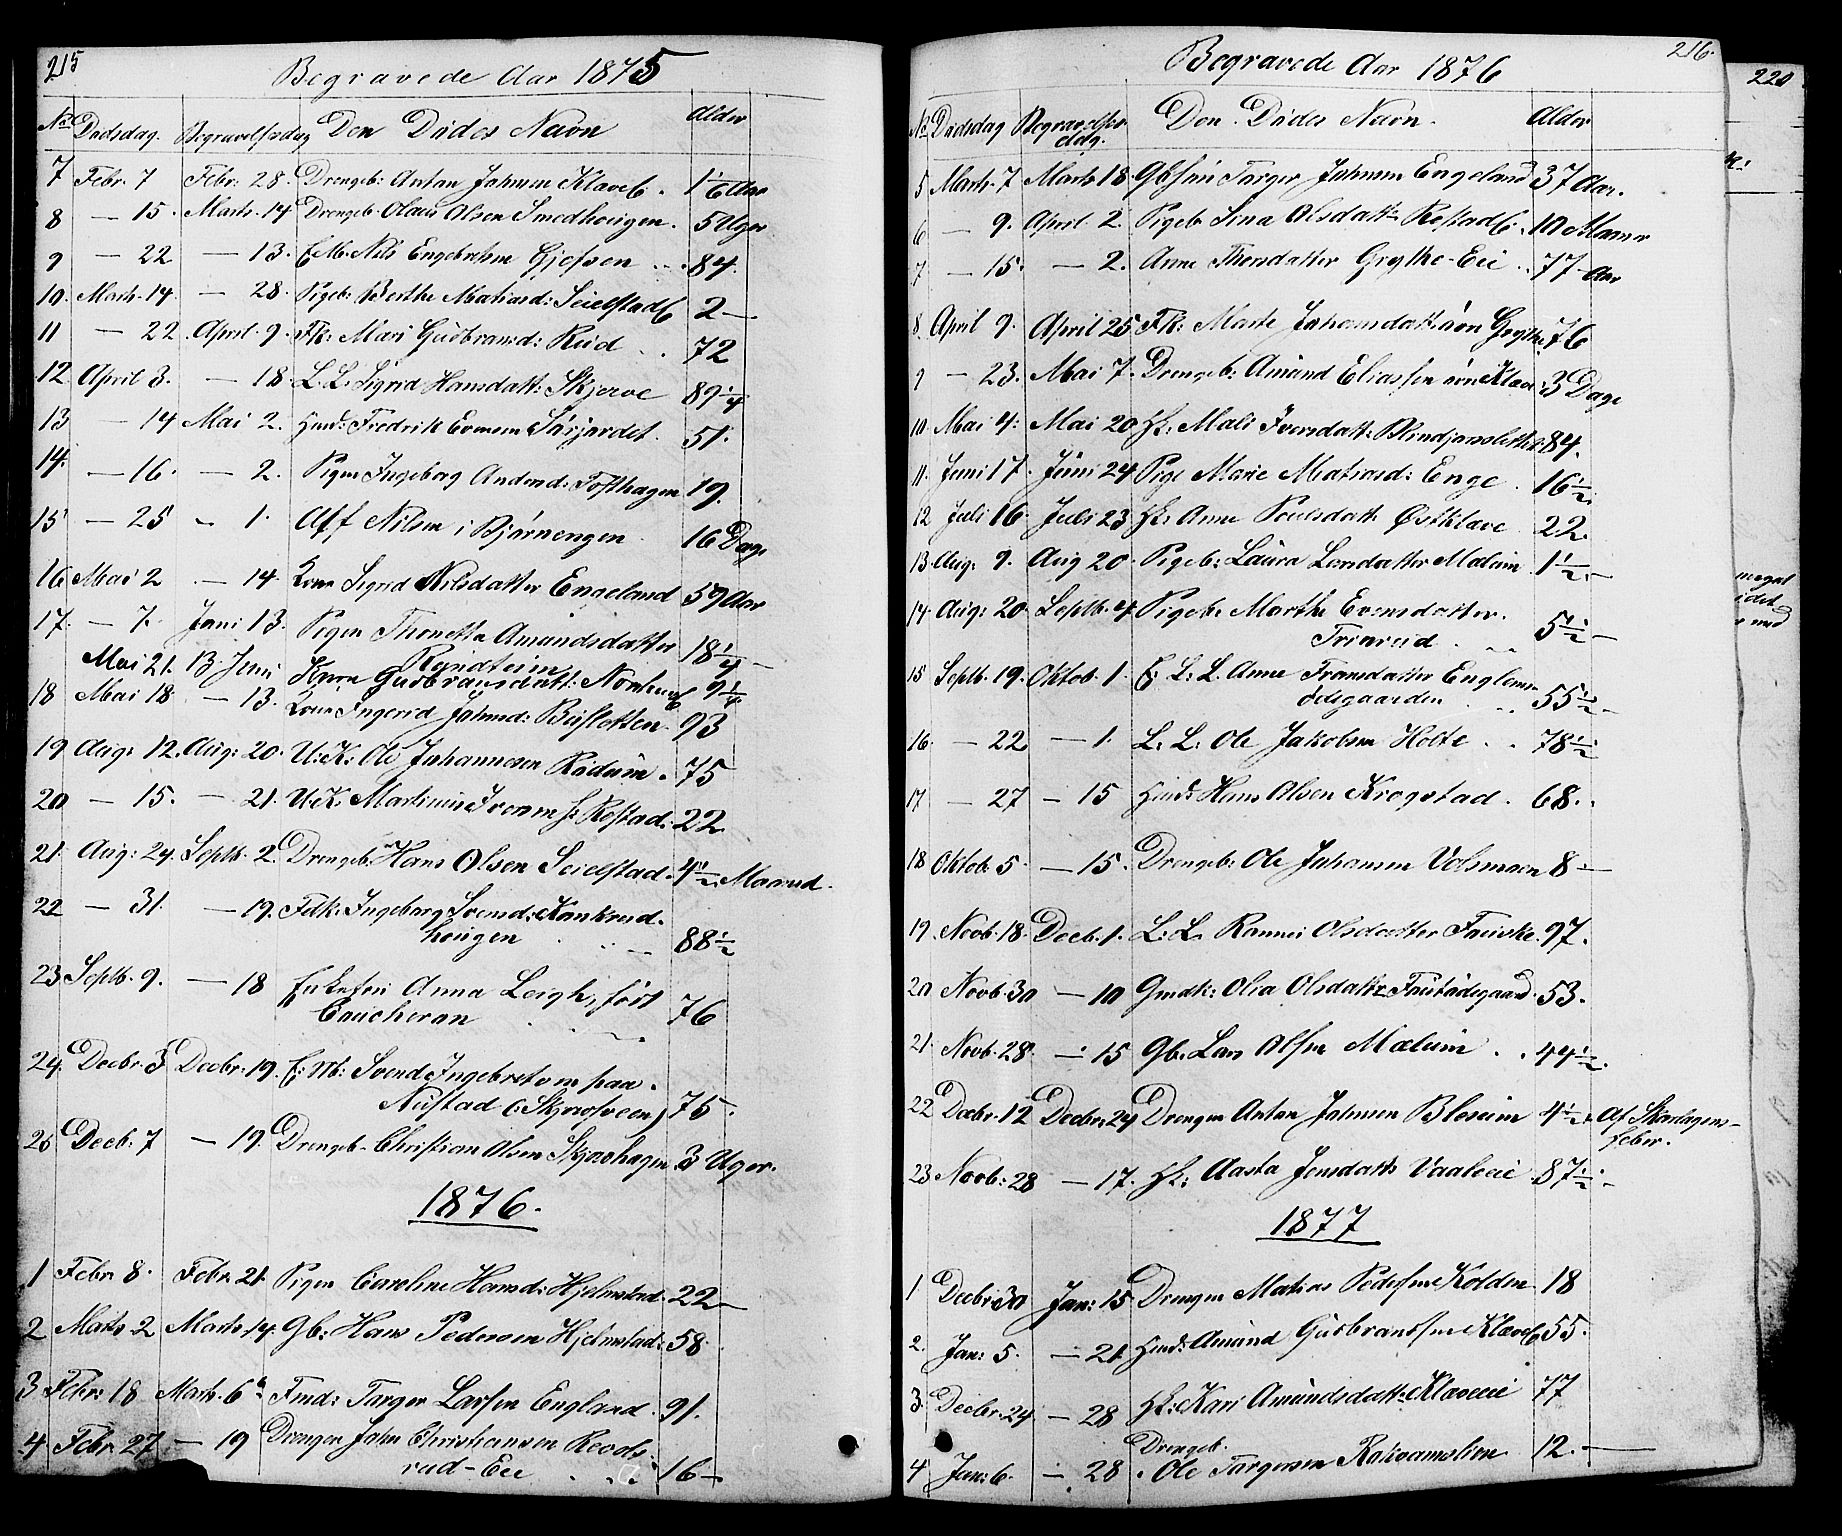 215
Begravede Aar 1875
No Dødsdag. Begravelsesdag Den Dødes Navn Alder
7 Febr. 7 Febr. 28. Drengeb: Anton Johnsen Klæveb. 1 1/6 Aar
8 — 15. Marts. 14 Drengeb. Olaus Olsen Smedhougen. 5 Uger
9 — 22 — 13. E.M. Nils Engebretsen Gjefsen . . 84.
10. Marts. 14. — 28. Pigeb: Berthe Mathiasd: Seielstad 2 —
11 — 22 April. 9. Fk: Mari Gudbransd: Rud . . 72
12 April 3. — 18 L.L. Sigrid Hansdatt: Skjerve 89 1/4
13 — 14 Mai 2. Hmd: Fredrik Evensen Sørjordet. 51.
14. — 16. — 2. Pigen Ingeborg Andersd: Tofthagen 19.
15 — 25 „ 1. Alf Nilsen i Bjørnengen 16 Dage
16 Mai 2 — 14. Kone Sigrid Nilsdatter Engeland 59 Aar
17. — 7. Juni 13. Pigen Thonette Amundsdatter 18 1/4 —
Rundtein
Mai 21. 13 Juni Karn Gudbransdatt: 9 1/4
18 Mai 18 — 13. Kone Ingerid Johnsd: 93
19 Aug: 12. Aug: 20. U.K: Ole Johannesen Rudum. 75
20 — 15. — 21. U.K. Martinus Iversen Rostad: 22.
21. Aug: 24. Septb. 2. Drengeb. Hans Olsen Seielstad. 4 1/2 Maaned.
22 — 31. — 19. Fdk: Ingeborg Svensd: Kankrud
hougen 88 1/2
23 Septb. 9. — 18 Enkefru Anna Leigh, født
Caucheron 76
24. Decbr. 3 Decbr. 19. E: M: Svend Ingebretsen paa
Nustad (: Skjæfsveen) 75.
25 Decb. 7 — 19. Drengeb. Christian Olsen Skjæshagen 3 Uger.
1876.
1 Febr. 8. Febr. 21. Pigen Caroline Hansd: Hjelmstad. 22 —
2 Marts. 2 Marts. 14. Gb: Hans Pedersen Hjelmstad: 58.
3 Febr: 18 Marts. 6 Fmd: Torger Larsen England. 91.
4 Febr. 27 — 19 Drengen John Christiansen Revols
rud-Eie . . . 16 —
216.
Begravede Aar 1876
No Dødsdag Begravelses-
dag. Den Dødes Navn. Alder
5 Marts. 7 Marts 18. Torger Johnsen Engeland 37 Aar.
6 — 9. April. 2. Pigeb Sina Olsdatt: Rostad 10 Maaner
7 — 15. — 2. Anne Thorsdatter Grythe-Eie . . 77 Aar
8. April 9. April 25 Fk: Marte Johansdatt Grythe 76
9 — 23. Mai 7. Drengeb: Amund Eliassen Klæve. 3 Dage
10. Mai 4. Mai 20 Hk: Mali Iversdatt: 84.
11. Juni 17. Juni 24 Pige Marie Mathiasd: Enge. 16 1/2.
12 Juli 16. Juli 23 Hk: Anne Poulsdatt: Østklæve 22.
13. Aug: 9. Aug 20. Pigeb: Laura Larsdatter Mælum. 1 1/2. —
14. Aug: 20. Septb. 4 Pigeb. Marthe Evensdatter.
Trinrud . „ 5 1/2 —
15 Septb. 19. Oktob. 1. E: L: L. Anne Fransdatter
ødegaarden . „ 55 1/2 —
16. — 22 — 1. L: L: Ole Jakobsen Holte . . 78 1/2
17 — 27 — 15 Hmd: Hans Olsen Krogstad. 68. .
18 Oktob. 5. — 15. Drengeb. Ole Johansen Volsmoen 8 —
19. Novb. 18. Decb. 1. L: L. Rannei Olsdatter Fauske. 97.
20 Novb. 30 — 10 Gmdk: Olia Olsdatter 53.
21. Novb. 28. — 15 Gb. Lars Olsen Mælum . . 44 1/2.
22 Decbr. 12 Decbr. 24 Drengen Anton Johnsen Blesum 4 1/2. Af Skarlagens-
feber.
23 Novb: 28 — 17. Hk: Aasta Jensdatt: Vaaleeie 87 1/2 —
1877
1 Decbr. 30 Jan: 15 Drengen Mathias Pedersen Kolden 18
2. Jan: 5. — 21. Hmd: Amund Gudbrandsen Klæveb 55.
3. Decbr. 24 — 28 Hk: Kari Amundsdatt: Klæveeie 77
4 Jan: 6. — 28 Drengeb.
Ole Torgersen Kolvamslien 12. —
220
meget
idet